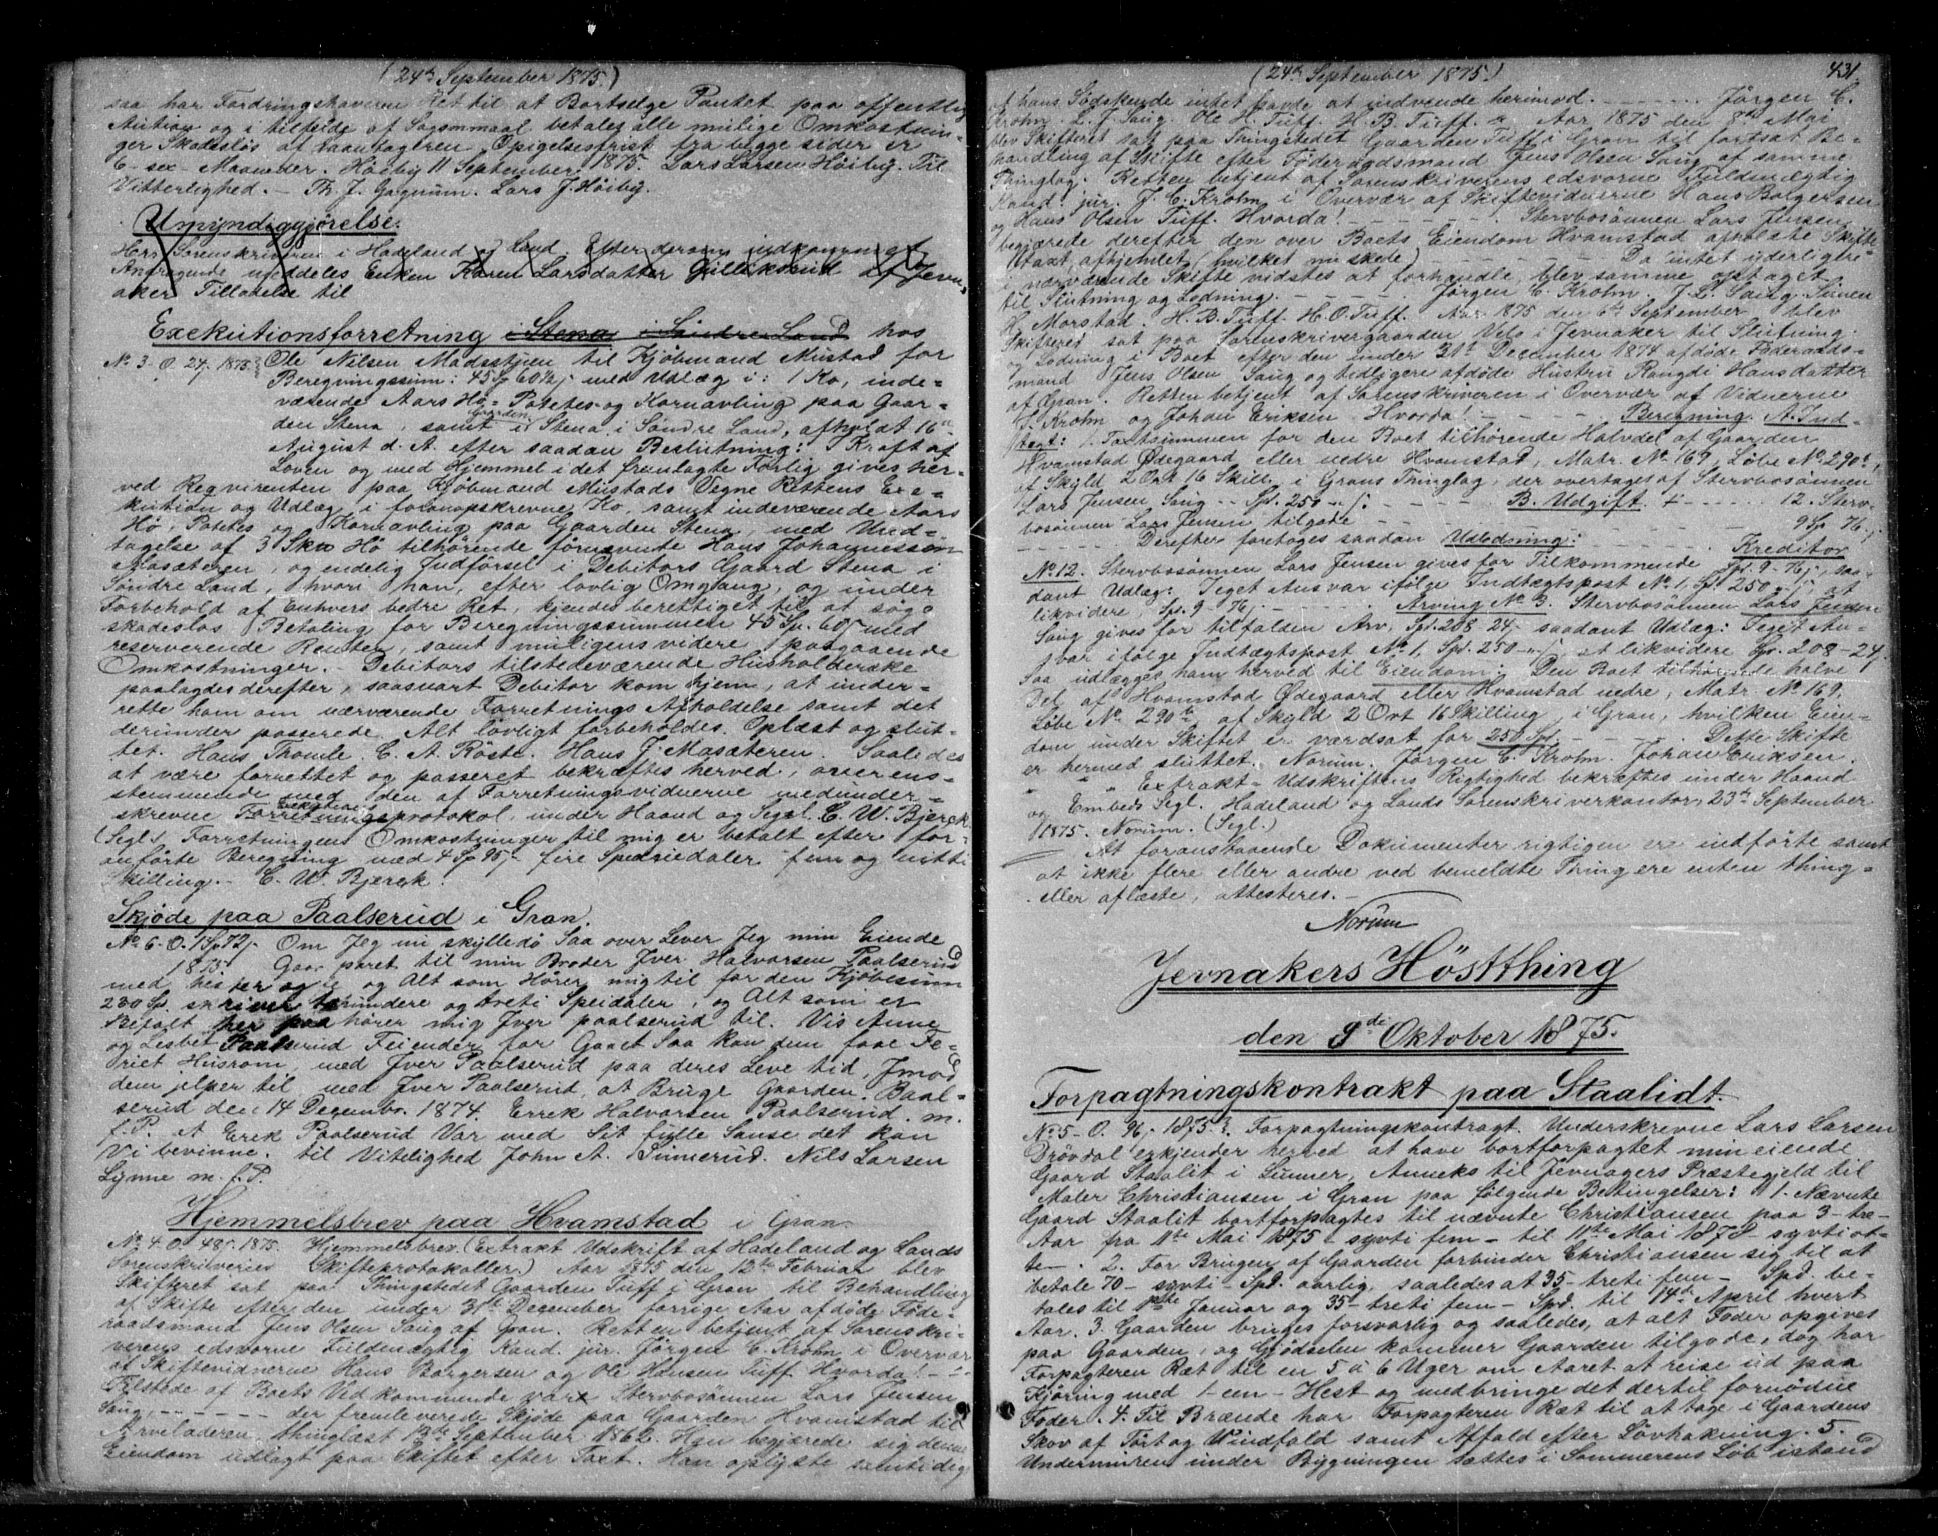 (24de September 1875)
saa har Fordringshaveren Ret til at Bortsælge Pantet paa offentlig
Auction og i tilfælde af Søgsmaal betales alle mulige Omkostnin-
ger Skadesløs af Laantageren. Opsigelsesfrist fra begge sider er
6 - sex - Maaneder. Høiby 11 September 1875. Lars Larsen Høiby. Til
Vitterlighed. - Th. J. Gagnum. Lars J. Høiby.
Umyndiggjørelse.
Hr. Sorenskriveren i Hadeland og Land. Efter derom indkommet
Andragende meddeles Enken Karen Larsdatter Gillerksrud af Jevn-
aker Tilladelse til
Exekutionsforretning i Stena i Søndre Land hos
No 3. O. 24/ 1875. Ole Nilsen Madsstuen til Kjøbmand Mustad for
Beregningssum: 45 Sp 60½ / med Udlæg i: 1 Ko, inde-
værende Aars Hø- Potetes- og Kornavling paa Gaar-
den Stena, samt i Gaarden Stena i Søndre Land, afholdt 16de
August d. A. efter saadan Beslutning: I Kraft af
Loven og med Hjemmel i det fremlagte Forlig gives her-
ved Reqvirenten paa Kjøbmand Mustads Vegne Rettens Exe-
kution og Udlæg i foranopskrevne Ko, samt indeværende Aars
Hø, Potetes og Kornavling paa Gaarden Stena, med Und-
tagelse af 3 Skn Hø tilhørende førnævnte Hans Johannessøn
Masæteren, og endelig Indførsel i Debitors Gaard Stena i
Søndre Land, hvori han, efter lovlig Omgang, og under
Forbehold af Enhvers bedre Ret, kjendes berettiget til at søge
skadesløs Betaling for Beregningssummen 45 Sp. 60 / med
reserverende Renter, samt muligens videre paagaaende
Omkostninger. - Debitors tilstedeværende Husholderske
paalagdes derefter, saasnart Debitor kom hjem, at under-
rette ham om nærværende Forretnings Afholdelse samt det
derunder passerede. Alt lovligt forbeholdes. Oplæst og slut-
tet. Hans Thomle. C. A. Røste. Hans J. Masæteren. Saaledes
at være forrettet og passeret bekræftes herved, overens-
stemmende med den af Forretningsvidnerne medunder-
skrevne Exekutionsprotokol, under Haand og Segl. C. W. Bjerck.
(Segl). Forretningens Omkostninger til mig er betalt efter for-
anførte Beregning med 4 Sp 95/ - fire Speciedaler fem og nitti
Skilling. - C. W. Bjerck.
Skjøde paa Paalserud i Gran.
No 6. O. 1 Sp 72/ Om Jeg nu skylle dø Saa over Lever Jeg min Eiende
1875. Gaar paret til min Broder Iver Halvorsen Paalserud
med hester og og Alt som Hører mig til for den Kjøbesum
230 Sp. skriver tohundere og treti Speidaler, og Alt som er
Betalt her paa hører mig Iver paalserud til. Vis Anne
og Lesbet Paalserud Feiender for Gaaet Saa kan dem faae Fe-
riet Husrom med Iver Paalserud paa deres Leve tid, Imod
dem jelper til med Iver Paalserud at Bruge Gaarden. Baal-
serud den 14 Decembr. 1874. Errek Halvorsen Paalserud. m.
f. P. At Erek Paalserud Var med Sit fulle Sanse det kan
Vi bevinne. til Vitelighed John A. Sinnerud. Nils Larsen
Lynne m. f. P.
Hjemmelsbrev paa Hvamstad i Gran
No 4. O. 48/. 1875. Hjemmelsbrev. (Extrakt Udskrift af Hadeland og Lands
Sorenskriveries Skifteprotokoller.) Aar 1875 den 12te Februar blev
Skifteret sat paa Thingstedet Gaarden Tuff i Gran til Behandling
af Skifte efter den under 31te December forrige Aar afdøde Føde-
raadsmand Jens Olsen Saug af Gran. Retten betjent af Sorenskri-
verens edsvorne Fuldmægtig Kand. jur. Jørgen C. Krohn i Overvær
af Skiftevidnerne Hans Borgersen og Ole Hansen Tuff. Hvorda! - -
Tilstede af Boets Vedkommende vare Stervbosønnen Lars Jensen
Saug, - - - - - - der fremleverede Skjøde paa Gaarden Hvamstad til
Arveladeren, thinglæst 12te September 1862. Han begjærede sig denne
Eiendom udlagt paa Skiftet efter Taxt. Han oplyste samtidig
(24de September 1875.)
431
at hans Sødskende intet havde at indvende herimod. - - - - Jørgen C.
Krohn. L. J. Saug. Ole H. Tuff. H. B. Tuff. Aar 1875 den 8de Mai
blev Skifteret sat paa Thingstedet Gaarden Tuff i Gran til fortsat Be-
handling af Skifte efter Føderaadsmand Jens Olsen Saug af samme
Thinglag. Retten betjent af Sorenskriverens edsvorne Fuldmægtig
Kand. jur. J. C. Krohn i Overvær af Skiftevidnerne Hans Borgersen
og Hans Olsen Tuff. Hvorda! - - - - - - Stervbosønnen Lars Jensen
begjærede derefter den over Boets Eiendom Hvamstad afholdte Skifte-
taxt, afhjemlet (hvilket nu skete) - - - - - Da intet yderligere
i nærværende Skifte vidstes at forhandle, blev samme optaget
til Slutning og Lodning. - - - - - Jørgen C. Krohn. J. L. Saug. Simen
H. Morstad. H. B. Tuff. H. O. Tuff. Aar 1875 den 6te September blev
Skifteret sat paa Sorenskrivergaarden Velo i Jevnaker til Slutning
og Lodning i Boet efter den under 31te December 1874 afdøde Føderaads-
mand Jens Olsen Saug og tidligere afdøde Hustru Rangdi Hansdatter
af Gran. Retten betjent af Sorenskriveren i Overvær af Vidnerne
J. Krohn og Johan Eriksen. Hvorda! - - - - Beregning. A. Ind-
tægt: 1. Taxtsummen for den Boet tilhørende Halvdel af Gaarden
Hvamstad Ødegaard eller nedre Hvamstad, Matr. No 169, Løbe No 290b,
af Skyld 2 Ort 16 Skill. i Grans Thinglag, der overtages af Stervbosønnen
Lars Jensen Saug - - Spd. 250 - / : B. Udgift - - - - 12. Sterv-
bosønnen Lars Jensen tilgode - - - - - 9 Sp 76 /
- - - - - Derefter foretoges saadan Udlodning: - - - - Kreditor
No 12. Stervbosønnen Lars Jensen gives for Tilkommende Sp. 9 - 76/, saa-
dant Udlæg: I eget Ansvar ifølge Indtægtspost No 1, Sp. 250 - /, at
likvidere Sp. 9 - 76/. - - - - Arving No 3. Stervbosønnen Lars Jensen
Saug gives for tilfalden Arv, Spd. 208. 24/ saadant Udlæg: I eget An-
svar ifølge Indtægtspost No 1, Spd. 250 - / at likvidere Sp. 208 - 24/
Saa udlægges ham herved til Eiendom: Den Boet tilhørende halve
Del af Hvamstad Ødegaard eller Hvamstad nedre, Matr. No 169,
Løbe No 290b, af Skyld 2 Ort 16 Skilling, i Gran, hvilken Eien-
dom under Skiftet er værdsat for 250 Spd. - - - - - Dette Skifte
er hermed sluttet. Norum. Jørgen C. Krohn. Johan Eriksen.
" " Extrakt-Udskriftens Rigtighed bekræftes under Haand
og Embeds Segl. Hadeland og Lands Sorenskriverkontor, 23de September
1875. Norum. (Segl.)
At foranstaaende Dokumenter rigtigen ere indførte samt
at ikke flere eller andre ved bemeldte Thing ere enten thing-
eller aflæste, attesteres. -
Norum
Jevnakers Høstthing
den 9de Oktober 1875.
Forpagtningskontrakt paa Staalidt.
No 5 - O. 96/. 1875. Forpagtningskontragt. Underskrevne Lars Larsen
Drøvdal erkjender herved at have bortforpagtet min eiende
Gaard Staalit i Lunner, Anneks til Jevnagers Præstegjeld til
Maler Christiansen i Gran paa følgende Betingelser: 1. Nævnte
Gaard Staalit bortforpagtes til nævnte Christiansen paa 3 - tre -
Aar fra 11te Mai 1875 - sytti fem - til 11te Mai 1878 - sytti ot-
te -. 2. For Brugen af Gaarden forbinder Christiansen sig til at
betale 70 - sytti Spd. aarlig, saaledes at 35 - treti fem - Spd. be-
tales til 1ste Januar og 35 - treti fem - Spd. til 14de April hvert
Aar. 3. Gaarden bruges forsvarlig og saaledes, at alt Foder opgives
paa Gaarden, og Gjødselen kommer Gaarden tilgode, dog har
Forpagteren Ræt til en 5 à 6 Uger om Aaret at reise ud paa
Kjøring med 1 - een - Hest og medbringe det dertil fornødne
Foder. 4. Til Brænde har Forpagteren Ræt til at tage i Gaardens
Skov af Tørt og Vindfald samt Affald efter Løvhakning. 5.
Undermuren under Bygningen sættes i Sommerens Løb istand